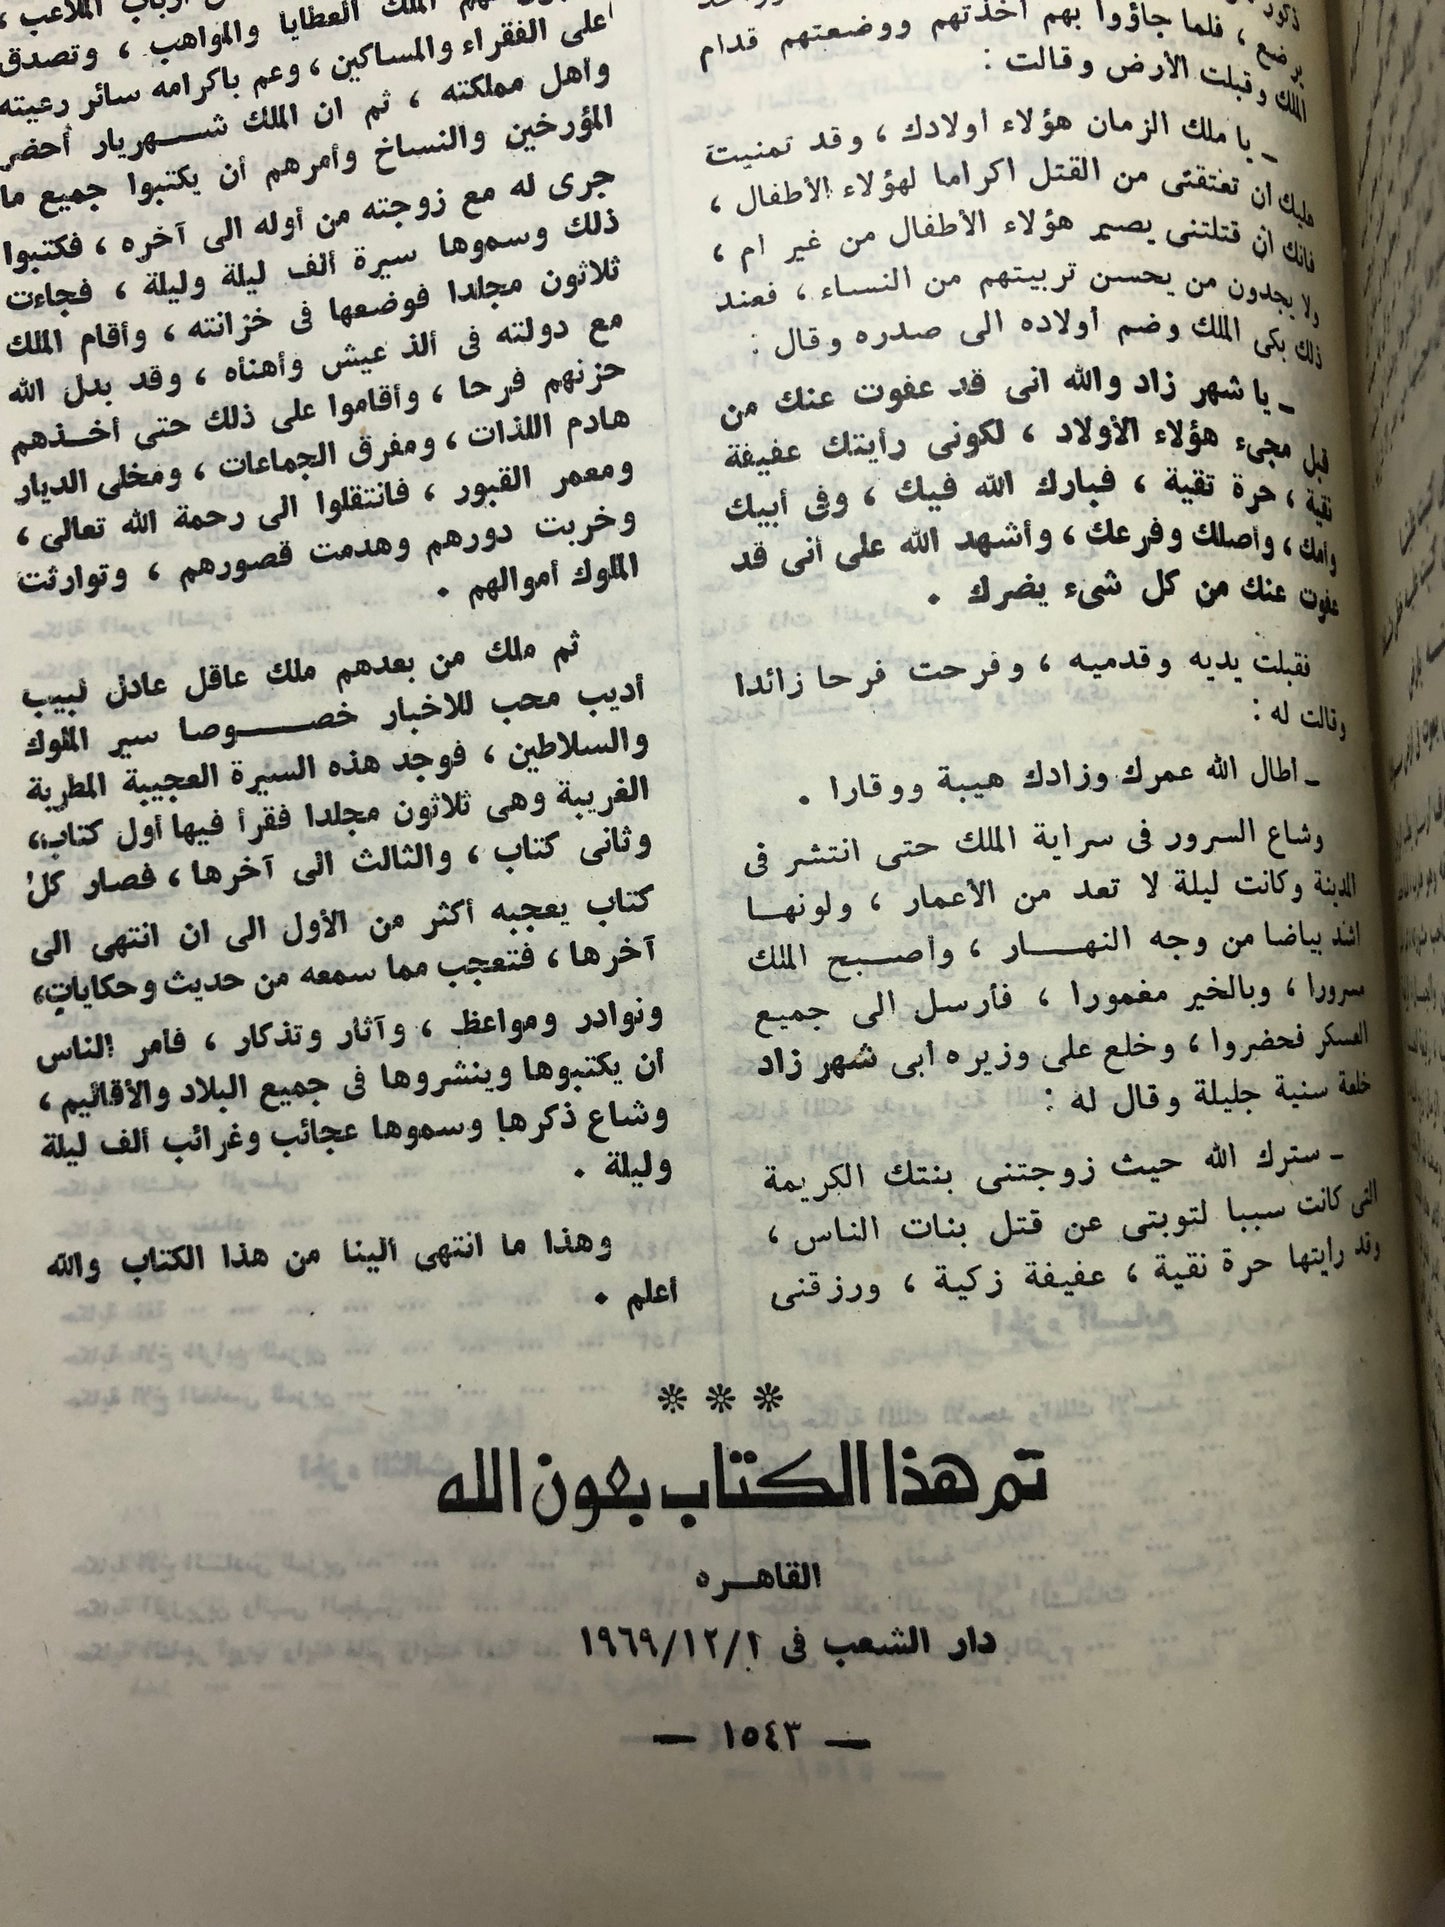 يرضع ، فلما جاؤوا بهم أخذتهم ووضعتهم قدام
الملك وقبلت الأرض وقالت :
ـ يا ملك الزمان هؤلاء أولادك ، وقد تمنيت
عليك أن تعتقنى من القتل اكراما لهؤلاء الأطفال ،
فانك ان قتلتنى يصير هؤلاء الأطفال من غير ام ،
ولا يجدون من يحسن تربيتهم من النساء ، فعند
ذلك بكى الملك وضم أولاده الى صدره وقال :
ـ يا شهر زاد والله انى قد عفوت عنك من
قبل مجىء هؤلاء الأولاد ، لكونى رأيتك عفيفة
نقية ، حرة تقية ، فبارك الله فيك ، وفى أبيك
وأمك ، وأصلك وفرعك ، وأشهد الله على أنى قد
عفوت عنك من كل شىء يضرك .
فقبلت يديه وقدميه ، وفرحت فرحا زائدا
وقالت له :
ـ أطال الله عمرك وزادك هيبة ووقارا .
وشاع السرور فى سراية الملك حتى انتشر فى
المدينة وكانت ليلة لا تعد من الأعمار ، ولونها
اشد بياضا من وجه النهار ، وأصبح الملك
مسرورا ، وبالخير مغمورا ، فأرسل الى جميع
العسكر فحضروا ، وخلع على وزيره أبى شهر زاد
خلعة سنية جليلة وقال له :
ـ سترك الله حيث زوجتنى بنتك الكريمة
التى كانت سببا لتوبتى عن قتل بنات الناس ،
وقد رايتها حرة نقية ، عفيفة زكية ، ورزقنى
الملك العطايا والمواهب ، وتصدق
على الفقراء والمساكين ، وعم باكرامه سائر رعيته
وأهل مملكته ، ثم ان الملك شهريار أحضر
المؤرخين والنساخ وأمرهم أن يكتبوا جميع ما
جرى له مع زوجته من أوله الى آخره ، فكتبوا
ذلك وسموها سيرة ألف ليلة وليلة ، فجاءت
ثلاثون مجلدا فوضعها فى خزانته ، وأقام الملك
مع دولته فى ألذ عيش وأهنأه ، وقد بدل الله
حزنهم فرحا ، وأقاموا على ذلك حتى أخذهم
هادم اللذات ، ومفرق الجماعات ، ومخلى الديار
ومعمر القبور ، فانتقلوا الى رحمة الله تعالى ،
وخربت دورهم وهدمت قصورهم ، وتوارثت
الملوك أموالهم .
ثم ملك من بعدهم ملك عاقل عادل لبيب
أديب محب للاخبار خصوصا سير الملوك
والسلاطين ، فوجد هذه السيرة العجيبة المطربة
الغريبة وهى ثلاثون مجلدا فقرأ فيها أول كتاب ،
وثانى كتاب ، والثالث الى آخرها ، فصار كل
كتاب يعجبه أكثر من الأول الى ان انتهى الى
آخرها ، فتعجب مما سمعه من حديث وحكايات ،
ونوادر ومواعظ ، وآثار وتذكار ، فأمر الناس
أن يكتبوها وينشروها فى جميع البلاد والأقاليم ،
وشاع ذكرها وسموها عجائب وغرائب ألف ليلة
وليلة .
وهذا ما انتهى الينا من هذا الكتاب والله
أعلم .
تم هذا الكتاب بعون الله
القاهره
دار الشعب فى ١٩٦٩/١٢/١
— ١٥٤٣ —